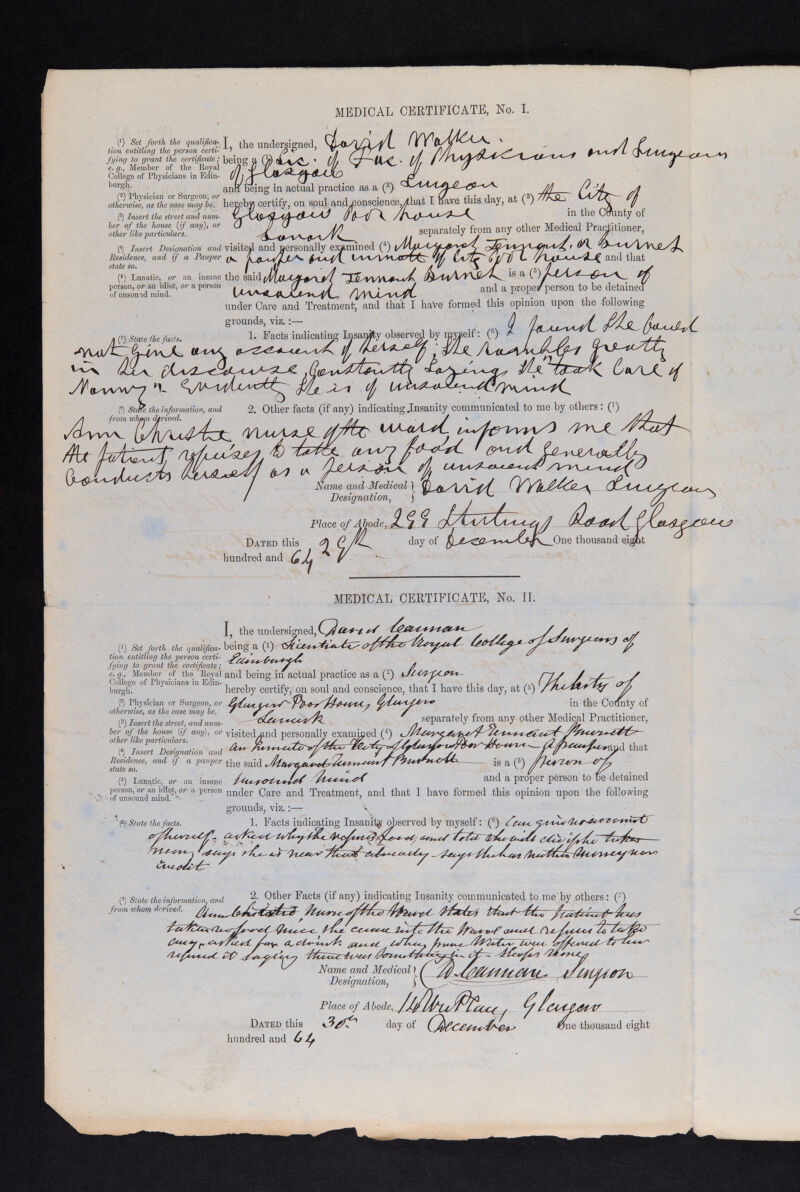 MEDICAL CERTIFICATE, No. I.
(¹) Set forth the qualifica-
tion entitling the person certi-
fying to grant the certificate;
e. g., Member of the Royal
College of Physicians in Edin-
burgh.
(²) Physician or Surgeon, or
otherwise, as the case may be.
(³) Insert the street and num-
ber of the house (if any), or
other like particulars.
(⁴) Insert Designation and
Residence, and if a Pauper
state so.
(⁵) Lunatic, or an insane
person, or an idiot, or a person
of unsound mind.
I, the undersigned, David Walker
being a (¹) Lic. of Fac. of Physicians and Surgeons
of Glasgow
and being in actual practice as a (²) Surgeon
hereby certify, on soul and conscience, that I have this day, at (³) the City of
Glasgow Poor house in the County of
Lanark separately from any other Medical Practitioner,
visited and personally examined (⁴) Margaret Tennant or Burnet
a pauper and inmate of City Poor house and that
the said Margaret Tennant Burnet is a (⁵) person of
unsound mind and a proper person to be detained
under Care and Treatment, and that I have formed this opinion upon the following
grounds, viz.:—
(⁶) State the facts.
1. Facts indicating Insanity observed by myself: (⁶) I found she could
not give any account of herself, she rambles greatly
in her discourse, constantly saying she "took care of
Nanny". Evidently she is of unsound mind
(⁷) State the information, and
from whom derived.
2. Other facts (if any) indicating Insanity communicated to me by others: (⁷)
Ann Christie nurse of the ward informs me that
the patient refuses to take any food and generally
conducts herself as a person of unsound mind
Name and Medical
Designation, David Walker Surgeon
Place of Abode, 299 Stirlings Road Glasgow
DATED this 29th day of December One thousand eight
hundred and 64
MEDICAL CERTIFICATE, No. II.
(¹) Set forth the qualifica-
tion entitling the person certi-
fying to grant the certificate;
e. g., Member of the Royal
College of Physicians in Edin-
burgh.
(²) Physician or Surgeon, or
otherwise, as the case may be.
(³) Insert the street, and num-
ber of the house (if any), or
other like particulars.
(⁴) Insert Designation and
Residence, and if a pauper
state so.
(⁵) Lunatic, or an insane
person, or an idiot, or a person
of unsound mind.
I, the undersigned, David Cannan
being a (¹) Licentiate of the Royal College of Surgeons of
Edinburgh
and being in actual practice as a (²) Surgeon
hereby certify, on soul and conscience, that I have this day, at (³) The City of
Glasgow Poor House, Glasgow in the County of
Lanark separately from any other Medical Practitioner,
visited and personally examined (⁴) Margaret Tennant Burnett
An Inmate of the City of Glasgow Poor House A pauper and that
the said Margaret Tennant Burnett is a (⁵) person of
unsound mind and a proper person to be detained
under Care and Treatment, and that I have formed this opinion upon the following
grounds, viz.:—
(⁶) State the facts.
1. Facts indicating Insanity observed by myself: (⁶) Can give no account
of herself - asked why she refused food, and told she will die if she takes
says she is near that already - says she has neither money nor
credit
(⁷) State the information, and
from whom derived.
2. Other Facts (if any) indicating Insanity communicated to me by others: (⁷)
Ann Christie, Nurse of the Ward states that the patient has
taken no food since she came into the Ward and refuses to take
any, asked for a drink and when pure Water was offered to her
refused it saying there was something in it - sleeps none
Name and Medical
Designation, D Cannan Surgeon
Place of Abode, Place, Glasgow
DATED this 30th day of December One thousand eight
hundred and 64